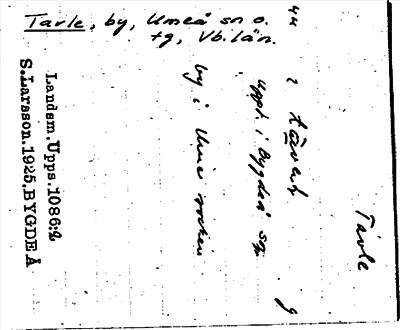 Tavle, by, Umeå sn o.
tg, Vb. län.
Tavle
Uppt. i Bygdeå sn
by i Ume socken
Landsm.Upps.1086:2
S.Larsson.1925.BYGDEÅ